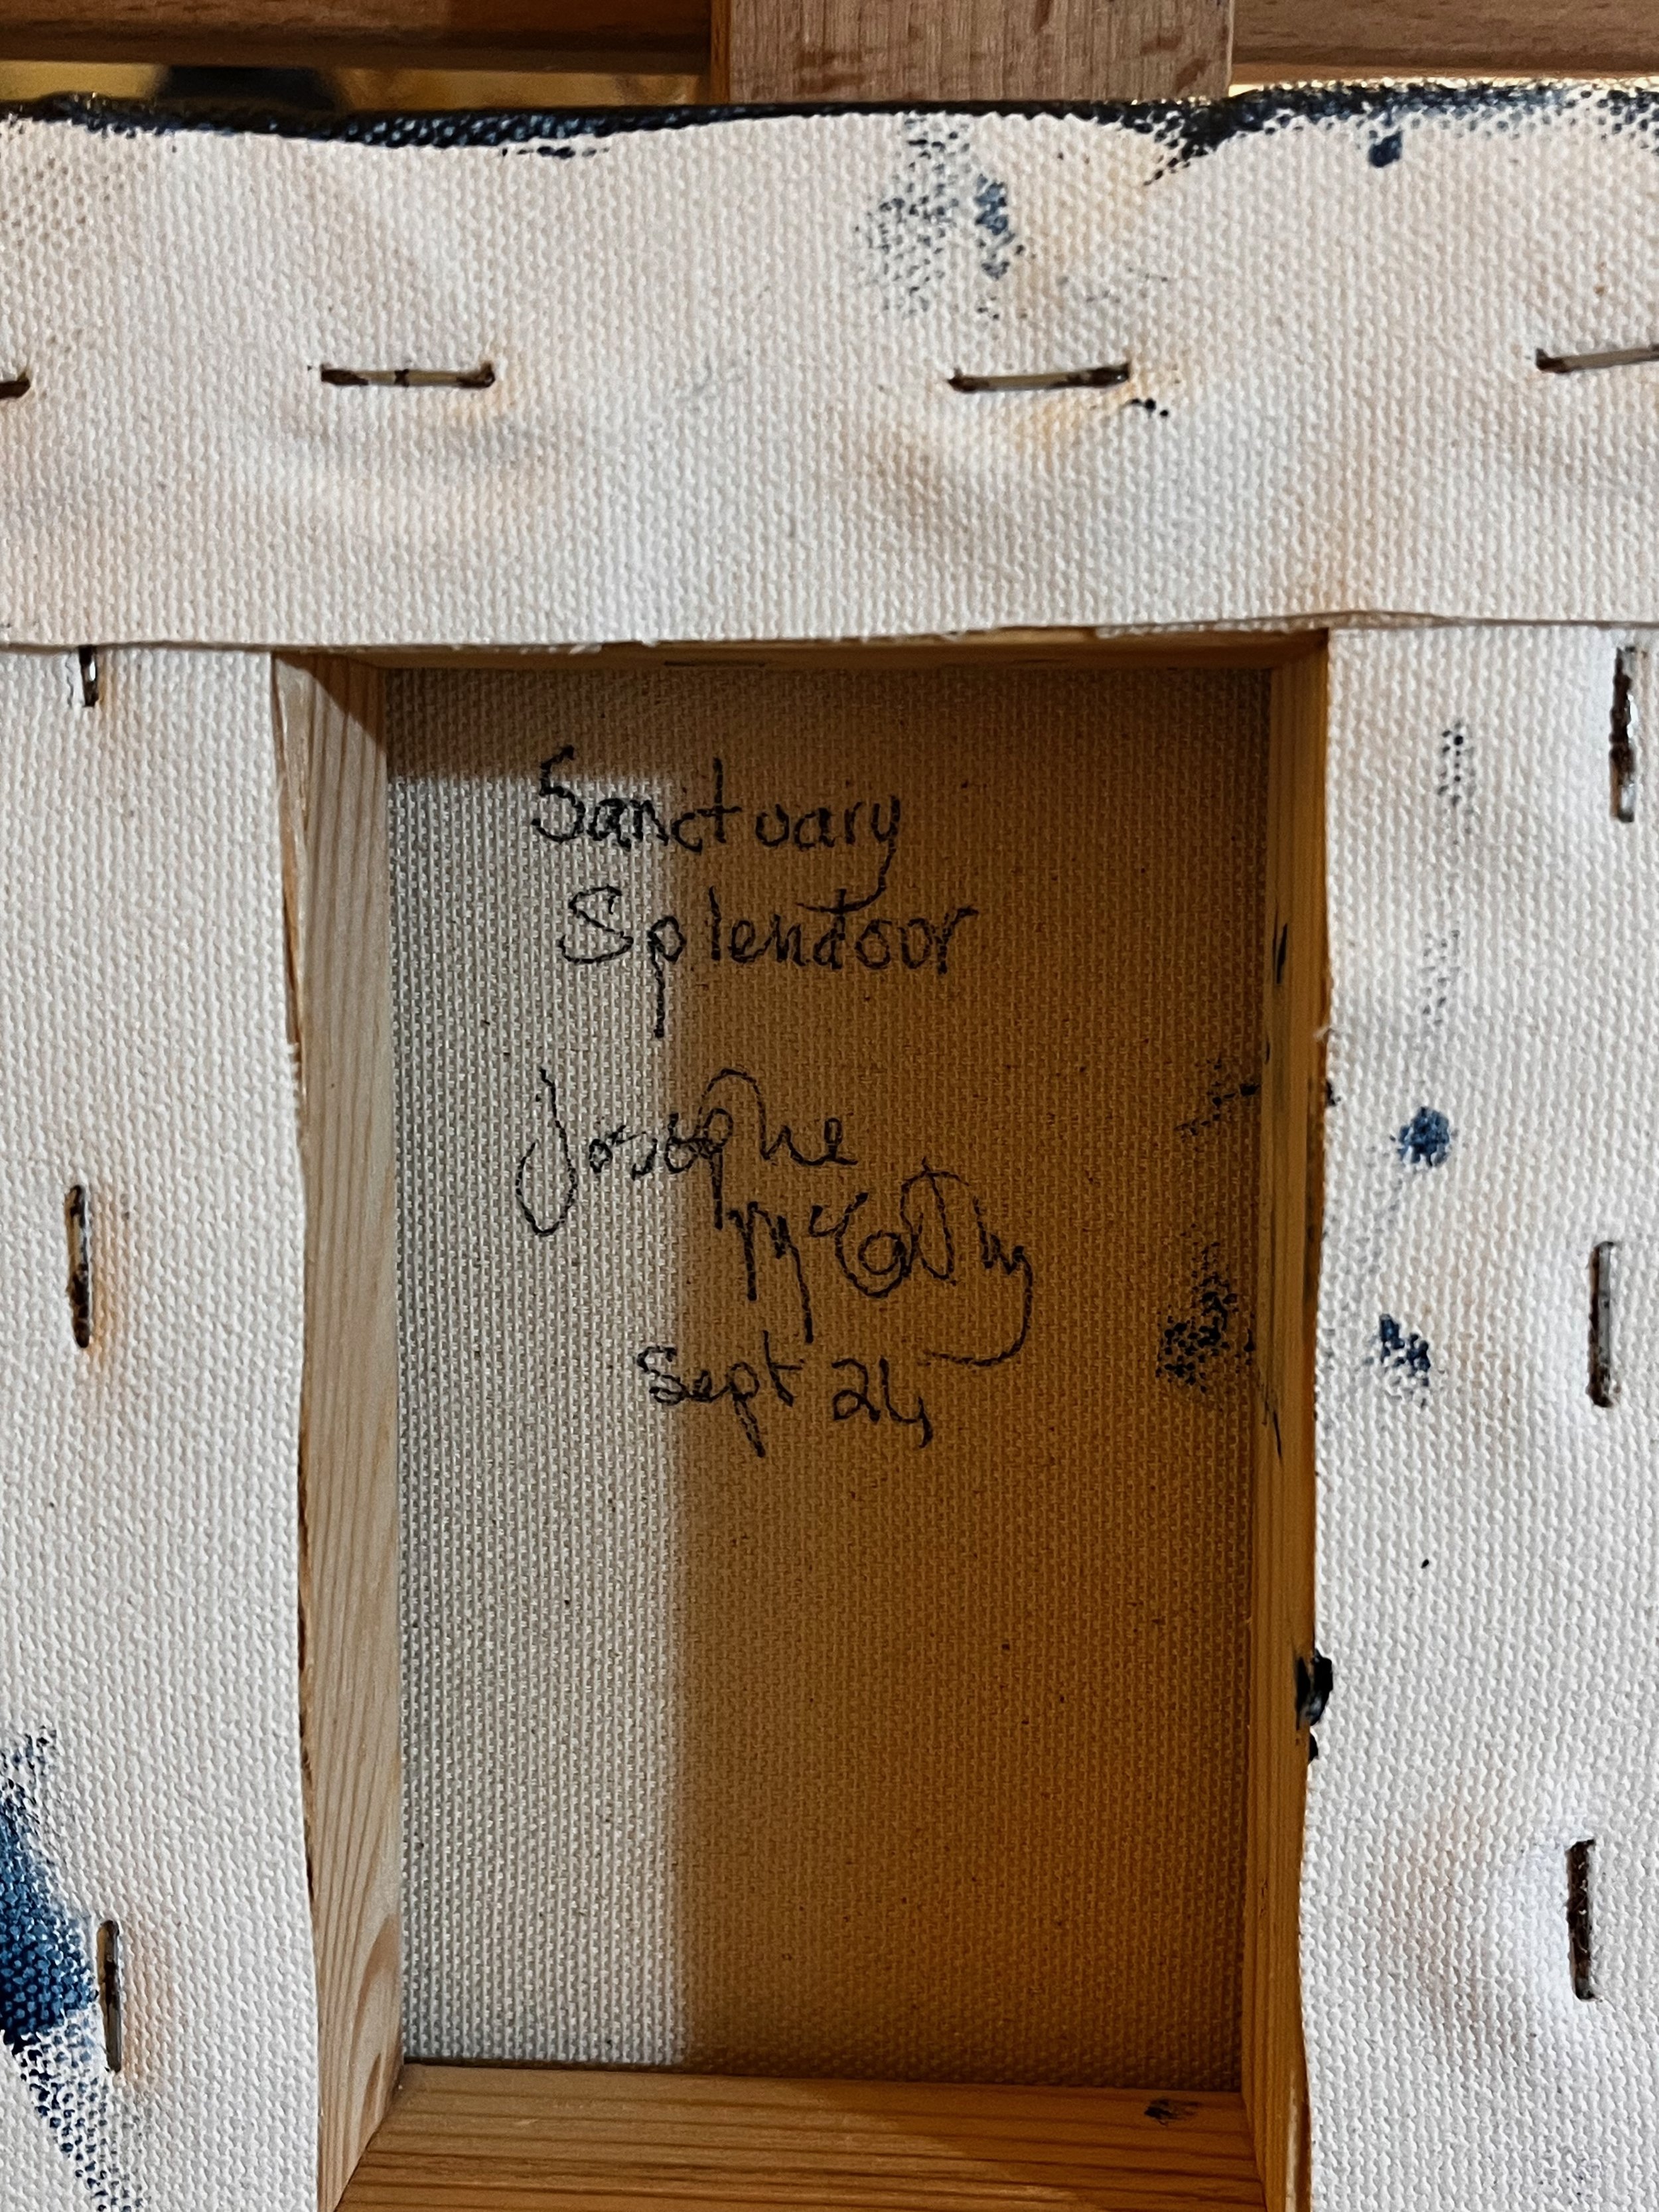 Sanctuary
Splendoor
Josephe
McCarthy
Sept 24